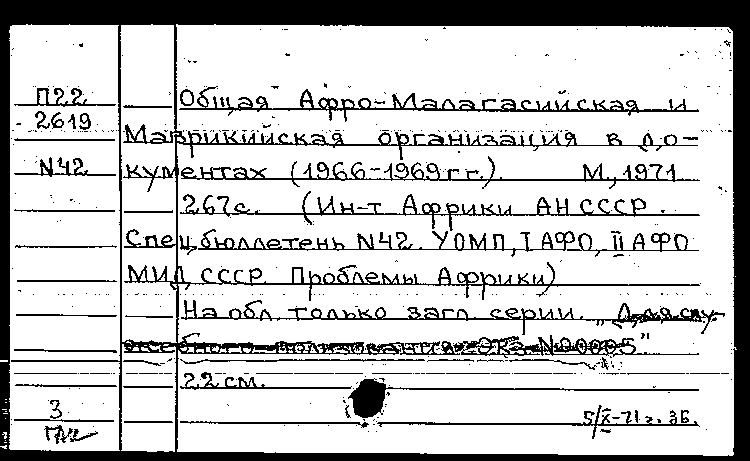 П22
2619
N42
Общая Афро-Малагасийская и
Маврикийская организация в до-
кументах (1966-1969гг.). М., 1971
267с. (Ин-т Африки АН СССР.
Спец.бюллетень N42. УОМП, I АФО, II АФО
МИД СССР. Проблемы Африки)
На обл. только загл. серии. „Для слу-
жебного пользования Экз. N00005"
22 см.
3
5/X-71г. ЗБ.